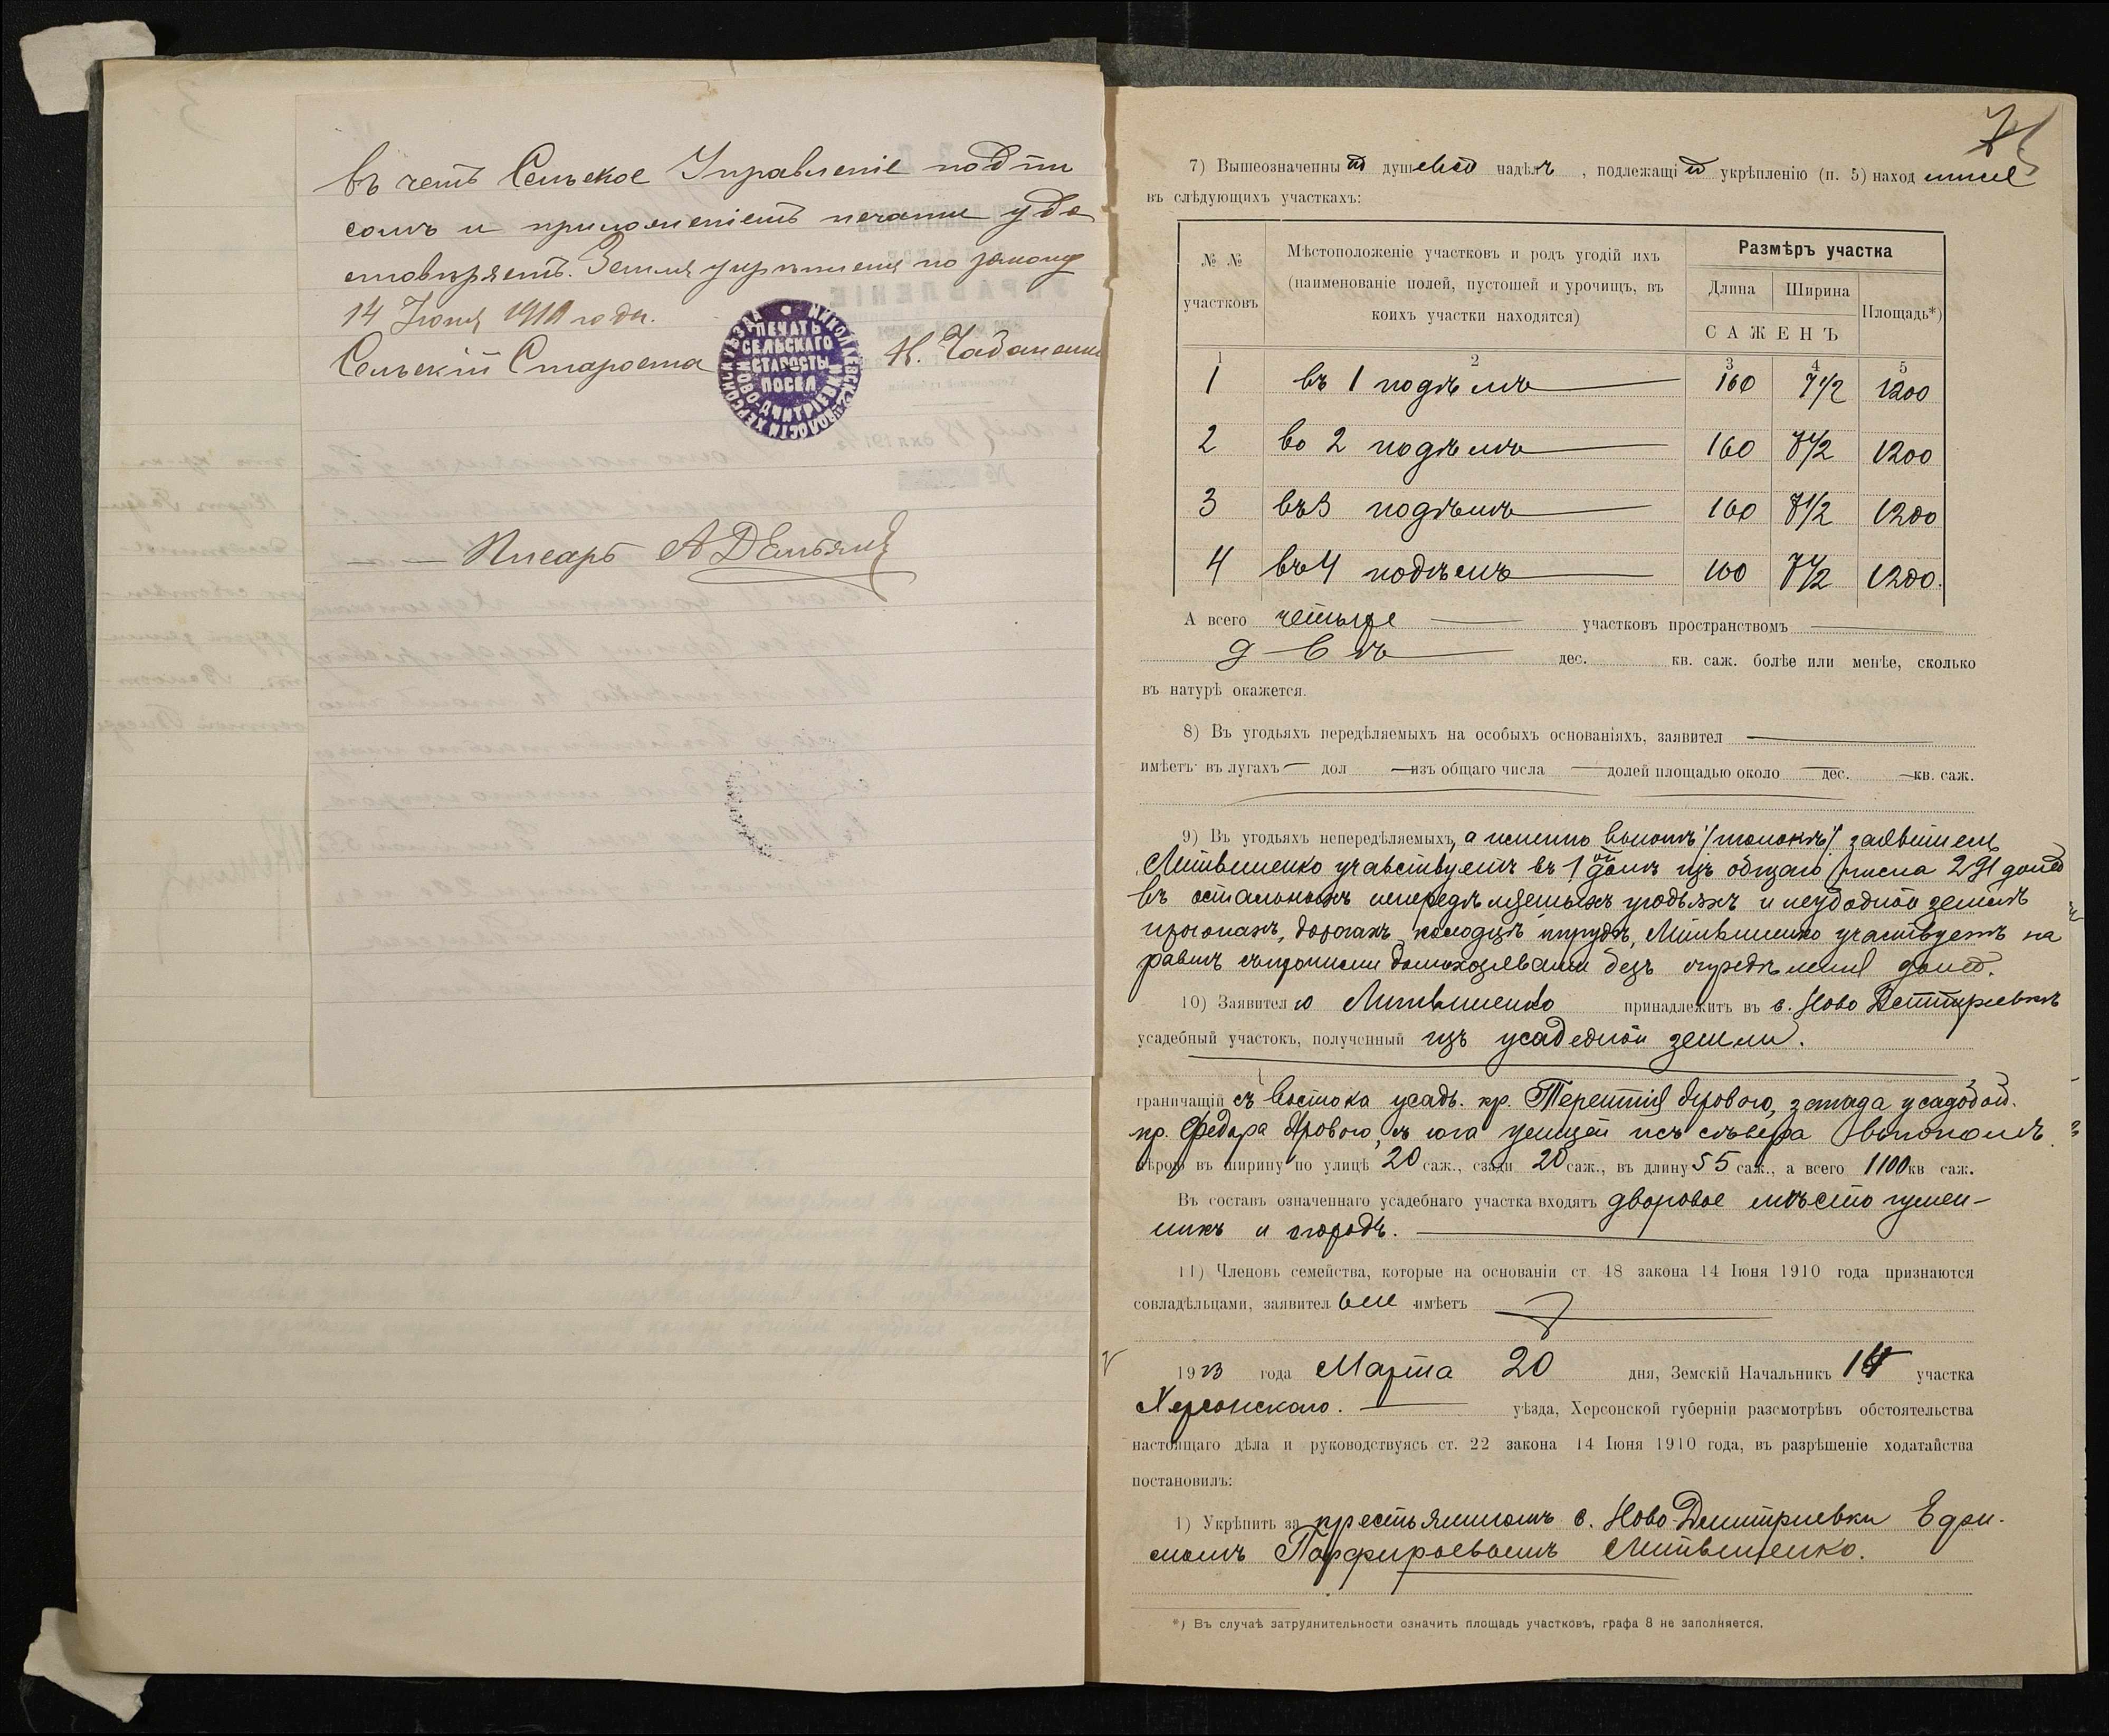 въ чемъ Сельское Управленіе подпи
сомъ и приложеніемъ печати удо
стовѣряетъ. Земля укрѣплена по закону
14 Іюня 1910 года.
Сельскій Староста Н. Чабаненко
НИКОЛАЕВСК. ВОЛОСТИ ХЕРСОНСК. УѢЗДА
ПЕЧАТЬ СЕЛЬСКАГО СТАРОСТЫ ПОСЕЛ. НОВО-ДМИТРІЕВКИ
Писарь А Д Емельян
7) Вышеозначенный душевой надѣлъ, подлежащій укрѣпленію (п. 5) находится
въ слѣдующихъ участкахъ:
№ № участковъ
Мѣстоположеніе участковъ и родъ угодій ихъ
(наименованіе полей, пустошей и урочищъ, въ
коихъ участки находятся)
Размѣръ участка
Длина Ширина Площадь*)
САЖЕНЪ
1 2 3 4 5
1 въ 1 подѣлѣ 160 7 1/2 1200
2 во 2 подѣлѣ 160 7 1/2 1200
3 въ 3 подѣлѣ 160 7 1/2 1200
4 въ 4 подѣлѣ 160 7 1/2 1200.
А всего четыре участковъ пространствомъ
двѣ дес. кв. саж. болѣе или менѣе, сколько
въ натурѣ окажется.
8) Въ угодьяхъ передѣляемыхъ на особыхъ основаніяхъ, заявител
имѣетъ въ лугахъ дол изъ общаго числа долей площадью около дес. кв. саж.
9) Въ угодьяхъ непередѣляемыхъ, а именно выгонѣ /толокѣ/ заявитель
Литвиненко учавствуетъ въ 1ой долѣ изъ общаго числа 291 долей
въ остальныхъ непередѣляемыхъ угодьяхъ и неудобной землѣ
прогонахъ, дорогахъ, колодцѣ и прудѣ, Литвиненко участвуетъ на
равнѣ съ прочими домохозяевами безъ опредѣленія долей.
10) Заявителю Литвиненко принадлежитъ въ с. Ново Дмитріевкѣ
усадебный участокъ, полученный изъ усадебной земли.
граничащій съ востока усадь. кр. Терентія Ярового, запада усадьбой
кр. Федора Ярового, съ юга улицей и съ сѣвера выгономъ
мѣрою въ ширину по улицѣ 20 саж., сзади 20 саж., въ длину 55 саж., а всего 1100 кв саж.
Въ составъ означеннаго усадебнаго участка входятъ дворовое мѣсто гумен-
никъ и огородъ.
11) Членовъ семейства, которые на основаніи ст 48 закона 14 Іюня 1910 года признаются
совладѣльцами, заявител имѣетъ
1913 года Марта 20 дня, Земскій Начальникъ 14 участка
Херсонскаго. уѣзда, Херсонской губерніи разсмотрѣвъ обстоятельства
настоящаго дѣла и руководствуясь ст. 22 закона 14 Іюня 1910 года, въ разрѣшеніе ходатайства
постановилъ:
1) Укрѣпить за крестьяниномъ с. Ново-Дмитріевки Ефи-
момъ Порфирьевымъ Литвиненко.
*) Въ случаѣ затруднительности означить площадь участковъ, графа 8 не заполняется.